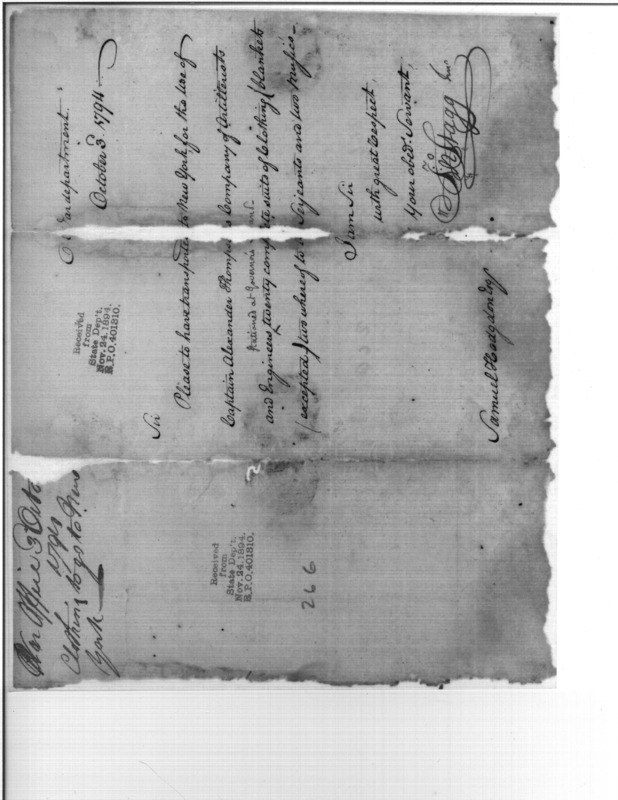 War department.
October 3d. 1794
Received
from
State Dep't.
Nov. 24. 1894.
B.P.O. 401310.
Sir
Please to have transported to New York for the use of
Captain Alexander Thompsons Company of Artillerists
stationed at Governors Island
and Engineers, twenty complete suits of Clothing (blankets
excepted) two whereof to be Serjeants and two musics—
I am Sir
with great respect,
Your obedt. Servant,
Jno Stagg Junr
Samuel Hodgdon Esqr
War Office 3 Octo
1794
Clothing to go to New
York
Received
from
State Dep't.
Nov. 24. 1894.
B.P.O. 401310.
2
266